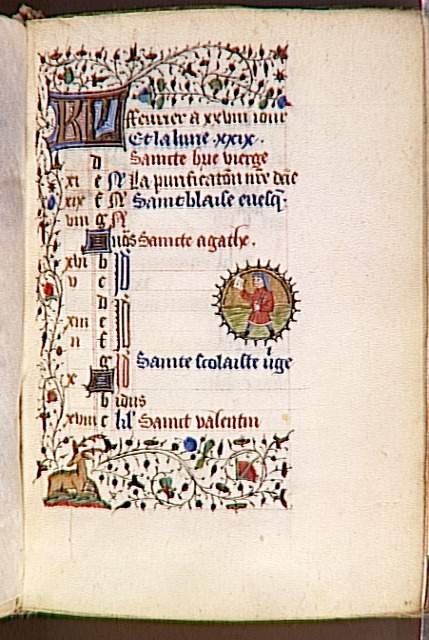 KL feurier a xxviii iour
Et la lune xxix.
d Saincte brie vierge
xi e N La purificatõn nrẽ dãe
xix f N Saint blaise euesq.
viii g N
A noš Saincte agathe.
xvi b id
v c id
d id
xiii e id
ii f id
g id Sainte scolaiste v̾ge
x A id
b idus
xviii c kl' Sainct valentin